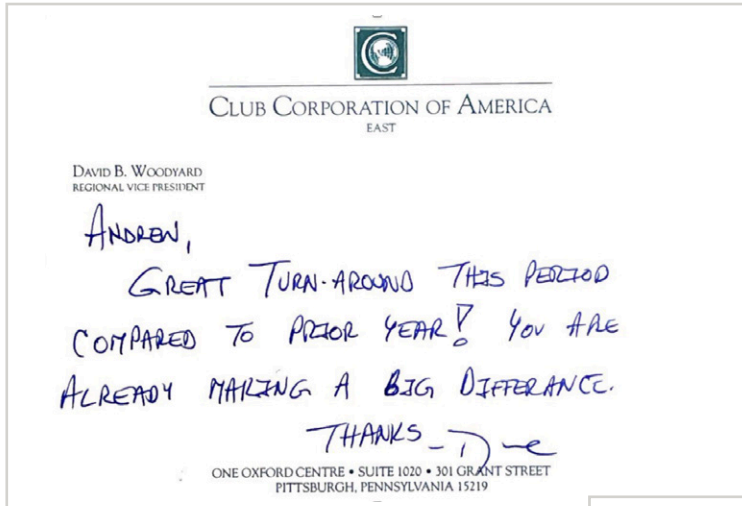 C
CLUB CORPORATION OF AMERICA
EAST
DAVID B. WOODYARD
REGIONAL VICE PRESIDENT
ANDREW,
GREAT TURN-AROUND THIS PERIOD
COMPARED TO PRIOR YEAR! YOU ARE
ALREADY MAKING A BIG DIFFERANCE.
THANKS - Dave
ONE OXFORD CENTRE • SUITE 1020 • 301 GRANT STREET
PITTSBURGH, PENNSYLVANIA 15219